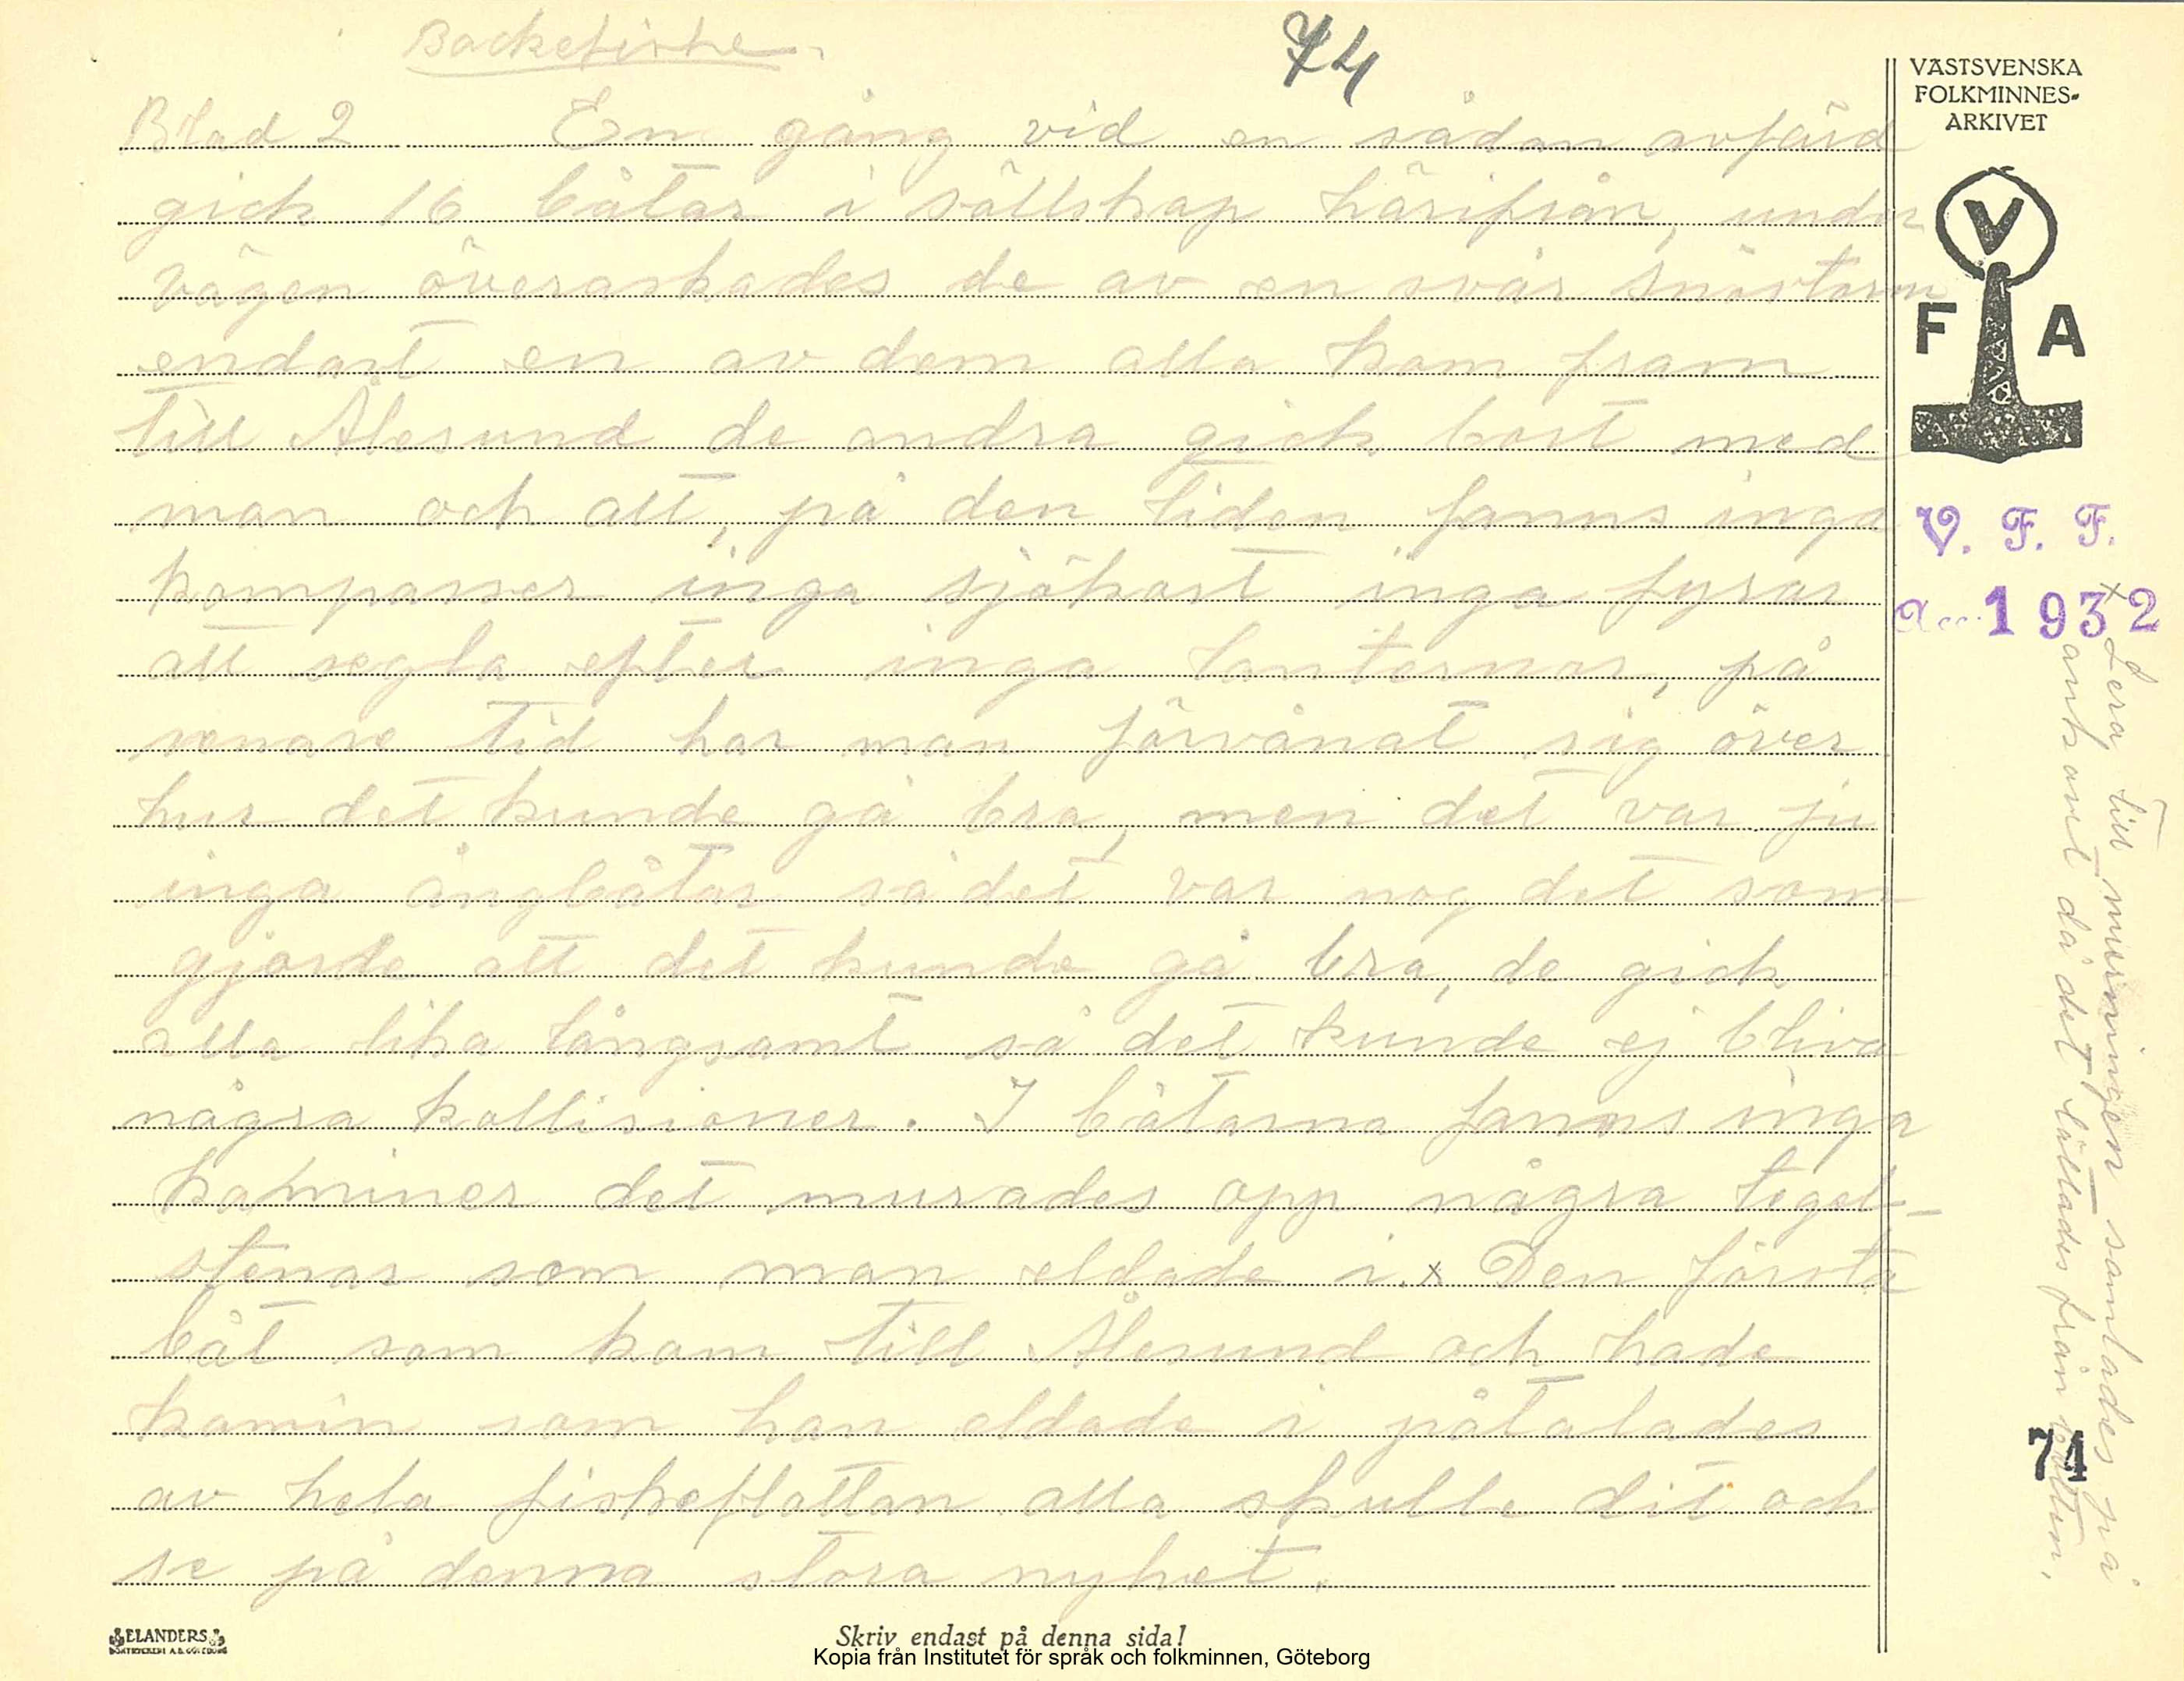 Backefiske
74
Blad 2 En gång vid en sådan avfärd
gick 16 båtar i sällskap härifrån, under
vägen överaskades de av en svår snöstorm
endast en av dem alla kom fram
till Ålesund de andra gick bort med
man och allt, på den tiden fanns inga
kompasser inga sjökort inga fyrar
att segla efter inga lanternor, på
senare tid har man förvånat sig över
hur det kunde gå bra, men det var ju
inga ångbåtar så det var nog det som
gjorde att det kunde gå bra, de gick
alla lika långsamt så det kunde ej bliva
några kollisioner. I båtarna fanns inga
kaminer det murades opp några tegel-
stenar som man eldade i. x Den första
båt som kom till Ålesund och hade
kamin som han eldade i påtalades
av hela fiskeflottan alla skulle dit och
se på denna stora nyhet.
VÄSTSVENSKA
FOLKMINNES-
ARKIVET
V
F A
V. F. F.
Acc. 1932
x Lera till murningen samlades på
ankaret då det lättades från botten.
74
ELANDERS
BOKTRYCKERI A.B. GÖTEBORG
Skriv endast på denna sida!
Kopia från Institutet för språk och folkminnen, Göteborg